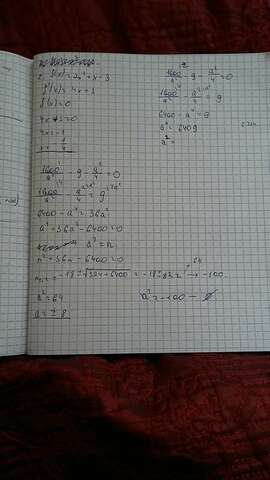 2. f(x) = 2x² + x - 3
f'(x) = 4x + 1
f'(x) = 0
4x + 1 = 0
4x = -1
x = -1/4
1600/a² - 9 - a²/4 = 0
1600/a² - a²/4 = 9
6400 - a⁴ = 36a²
a⁴ + 36a² - 6400 = 0
a² = n
n² + 36n - 6400 = 0
n₁,₂ = -18 ± √324+6400 = -18 ± 82 = → 64 → -100
a² = 64
a = ± 8
1600/a² - 9 - a²/4 = 0
1600/a² - a²/4 = 9
6400 - a⁴ = 9
a⁴ = 6409
a² =
a² = -100 - ∅